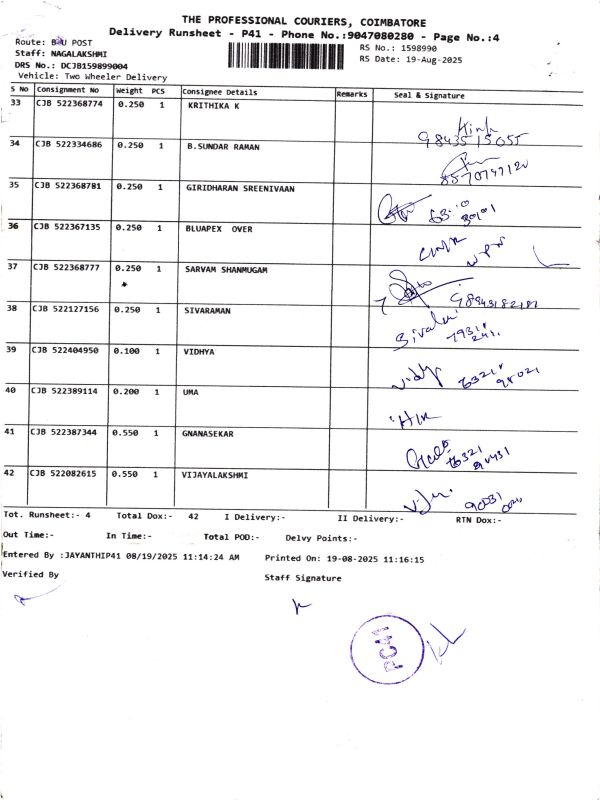 THE PROFESSIONAL COURIERS, COIMBATORE
Delivery Runsheet - P41 - Phone No.:9047080280 - Page No.:4
Route: B U POST
Staff: NAGALAKSHMI
DRS No.: DCJB159899004
Vehicle: Two Wheeler Delivery
RS No.: 1598990
RS Date: 19-Aug-2025
S No Consignment No Weight PCS Consignee Details Remarks Seal & Signature
33 CJB 522368774 0.250 1 KRITHIKA K
98435 15055
34 CJB 522334686 0.250 1 B.SUNDAR RAMAN
35 CJB 522368781 0.250 1 GIRIDHARAN SREENIVAAN
36 CJB 522367135 0.250 1 BLUAPEX OVER
37 CJB 522368777 0.250 1 SARVAM SHANMUGAM
38 CJB 522127156 0.250 1 SIVARAMAN
39 CJB 522404950 0.100 1 VIDHYA
40 CJB 522389114 0.200 1 UMA
41 CJB 522387344 0.550 1 GNANASEKAR
42 CJB 522082615 0.550 1 VIJAYALAKSHMI
Tot. Runsheet:- 4 Total Dox:- 42 I Delivery:- II Delivery:- RTN Dox:-
Out Time:- In Time:- Total POD:- Delvy Points:-
Entered By :JAYANTHIP41 08/19/2025 11:14:24 AM Printed On: 19-08-2025 11:16:15
Verified By Staff Signature
PC41